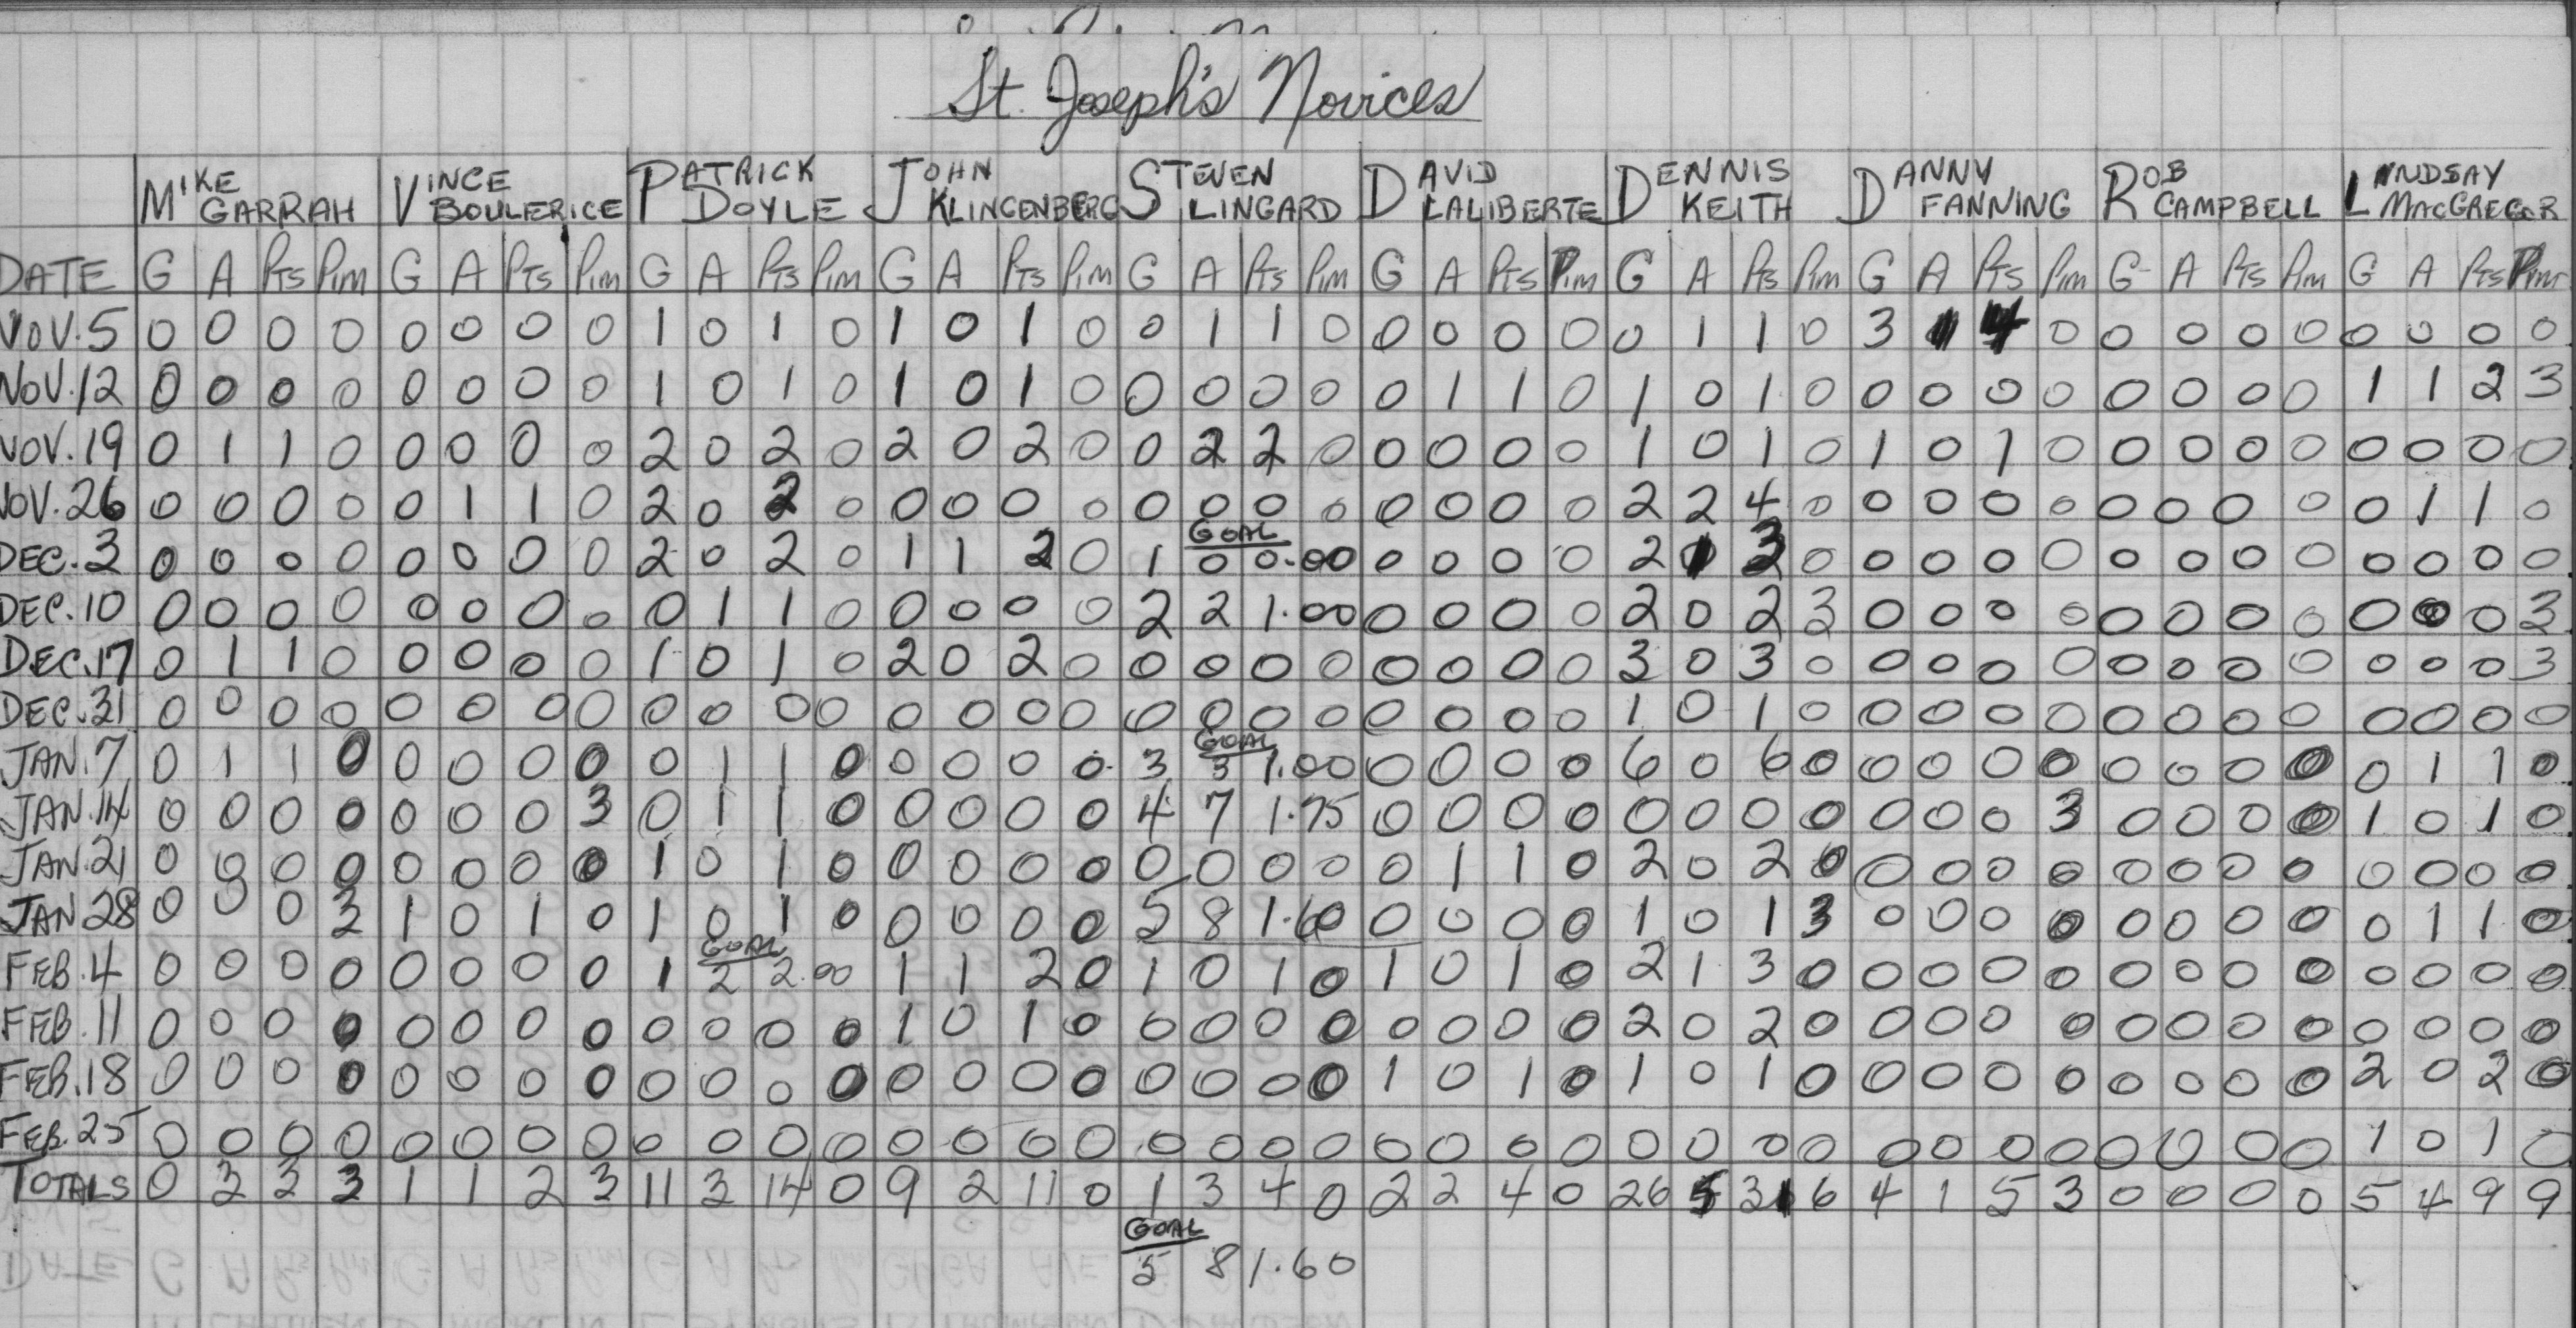 St. Joseph's Novices
MIKE GARRAH VINCE BOULERICE PATRICK DOYLE JOHN KLINGENBERG STEVEN LINGARD DAVID LALIBERTE DENNIS KEITH DANNY FANNING ROB CAMPBELL LINDSAY MACGREGOR
DATE G A Pts Pim G A Pts Pim G A Pts Pim G A Pts Pim G A Pts Pim G A Pts Pim G A Pts Pim G A Pts Pim G A Pts Pim G A Pts Pim
NOV. 5 0 0 0 0 0 0 0 0 1 0 1 0 1 0 1 0 0 1 1 0 0 0 0 0 0 1 1 0 3 1 4 0 0 0 0 0 0 0 0 0
NOV. 12 0 0 0 0 0 0 0 0 1 0 1 0 1 0 1 0 0 0 0 0 0 1 1 0 1 0 1 0 0 0 0 0 0 0 0 0 1 1 2 3
NOV. 19 0 1 1 0 0 0 0 0 2 0 2 0 2 0 2 0 0 2 2 0 0 0 0 0 1 0 1 0 1 0 1 0 0 0 0 0 0 0 0 0
NOV. 26 0 0 0 0 0 1 1 0 2 0 2 0 0 0 0 0 0 0 0 0 0 0 0 0 2 2 4 0 0 0 0 0 0 0 0 0 0 1 1 0
GOAL
DEC. 3 0 0 0 0 0 0 0 0 2 0 2 0 1 1 2 0 1 0 0.00 0 0 0 0 2 1 3 0 0 0 0 0 0 0 0 0 0 0 0 0
DEC. 10 0 0 0 0 0 0 0 0 0 1 1 0 0 0 0 0 2 2 1.00 0 0 0 0 2 0 2 3 0 0 0 0 0 0 0 0 0 0 0 3
DEC. 17 0 1 1 0 0 0 0 0 1 0 1 0 2 0 2 0 0 0 0 0 0 0 0 0 3 0 3 0 0 0 0 0 0 0 0 0 0 0 0 3
DEC. 31 0 0 0 0 0 0 0 0 0 0 0 0 0 0 0 0 0 0 0 0 0 0 0 0 1 0 1 0 0 0 0 0 0 0 0 0 0 0 0 0
GOAL
JAN. 7 0 1 1 0 0 0 0 0 0 1 1 0 0 0 0 0 3 3 1.00 0 0 0 0 6 0 6 0 0 0 0 0 0 0 0 0 0 1 1 0
JAN. 14 0 0 0 0 0 0 0 3 0 1 1 0 0 0 0 0 4 7 1.75 0 0 0 0 0 0 0 0 0 0 0 3 0 0 0 0 1 0 1 0
JAN. 21 0 0 0 0 0 0 0 0 1 0 1 0 0 0 0 0 0 0 0 0 0 1 1 0 2 0 2 0 0 0 0 0 0 0 0 0 0 0 0 0
JAN 28 0 0 0 3 1 0 1 0 1 0 1 0 0 0 0 0 5 8 1.60 0 0 0 0 1 0 1 3 0 0 0 0 0 0 0 0 0 1 1 0
GOAL
FEB. 4 0 0 0 0 0 0 0 0 1 2 2.00 1 1 2 0 1 0 1 0 1 0 1 0 2 1 3 0 0 0 0 0 0 0 0 0 0 0 0 0
FEB. 11 0 0 0 0 0 0 0 0 0 0 0 0 1 0 1 0 0 0 0 0 0 0 0 0 2 0 2 0 0 0 0 0 0 0 0 0 0 0 0 0
FEB. 18 0 0 0 0 0 0 0 0 0 0 0 0 0 0 0 0 0 0 0 0 1 0 1 0 1 0 1 0 0 0 0 0 0 0 0 0 2 0 2 0
FEB. 25 0 0 0 0 0 0 0 0 0 0 0 0 0 0 0 0 0 0 0 0 0 0 0 0 0 0 0 0 0 0 0 0 0 0 0 0 1 0 1 0
TOTALS 0 3 3 3 1 1 2 3 11 3 14 0 9 2 11 0 1 3 4 0 2 2 4 0 26 5 31 6 4 1 5 3 0 0 0 0 5 4 9 9
GOAL
5 8 1.60